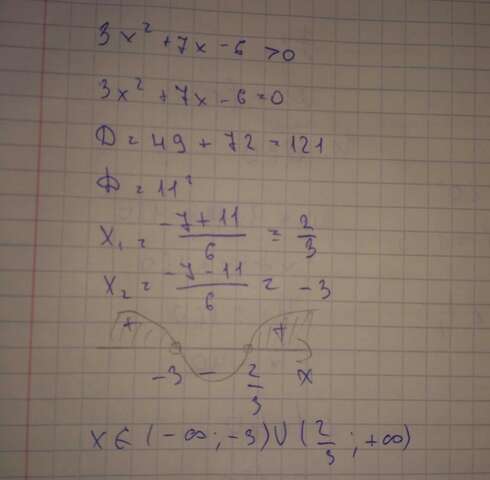 3x² + 7x - 6 > 0
3x² + 7x - 6 = 0
D = 49 + 72 = 121
D = 11²
x₁ = (-7 + 11)/6 = 2/3
x₂ = (-7 - 11)/6 = -3
+ +
-3 - 2/3 x
x ∈ (-∞; -3) ∪ (2/3; +∞)